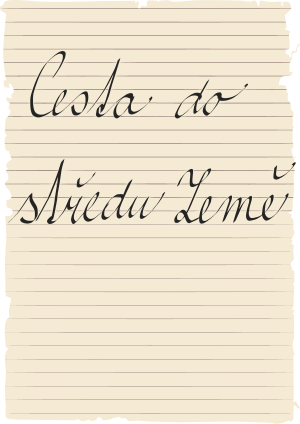 Cesta do
středu Země